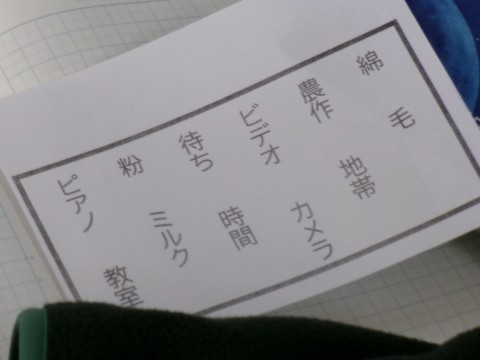 綿毛
農作地帯
ビデオカメラ
待ち時間
粉ミルク
ピアノ教室